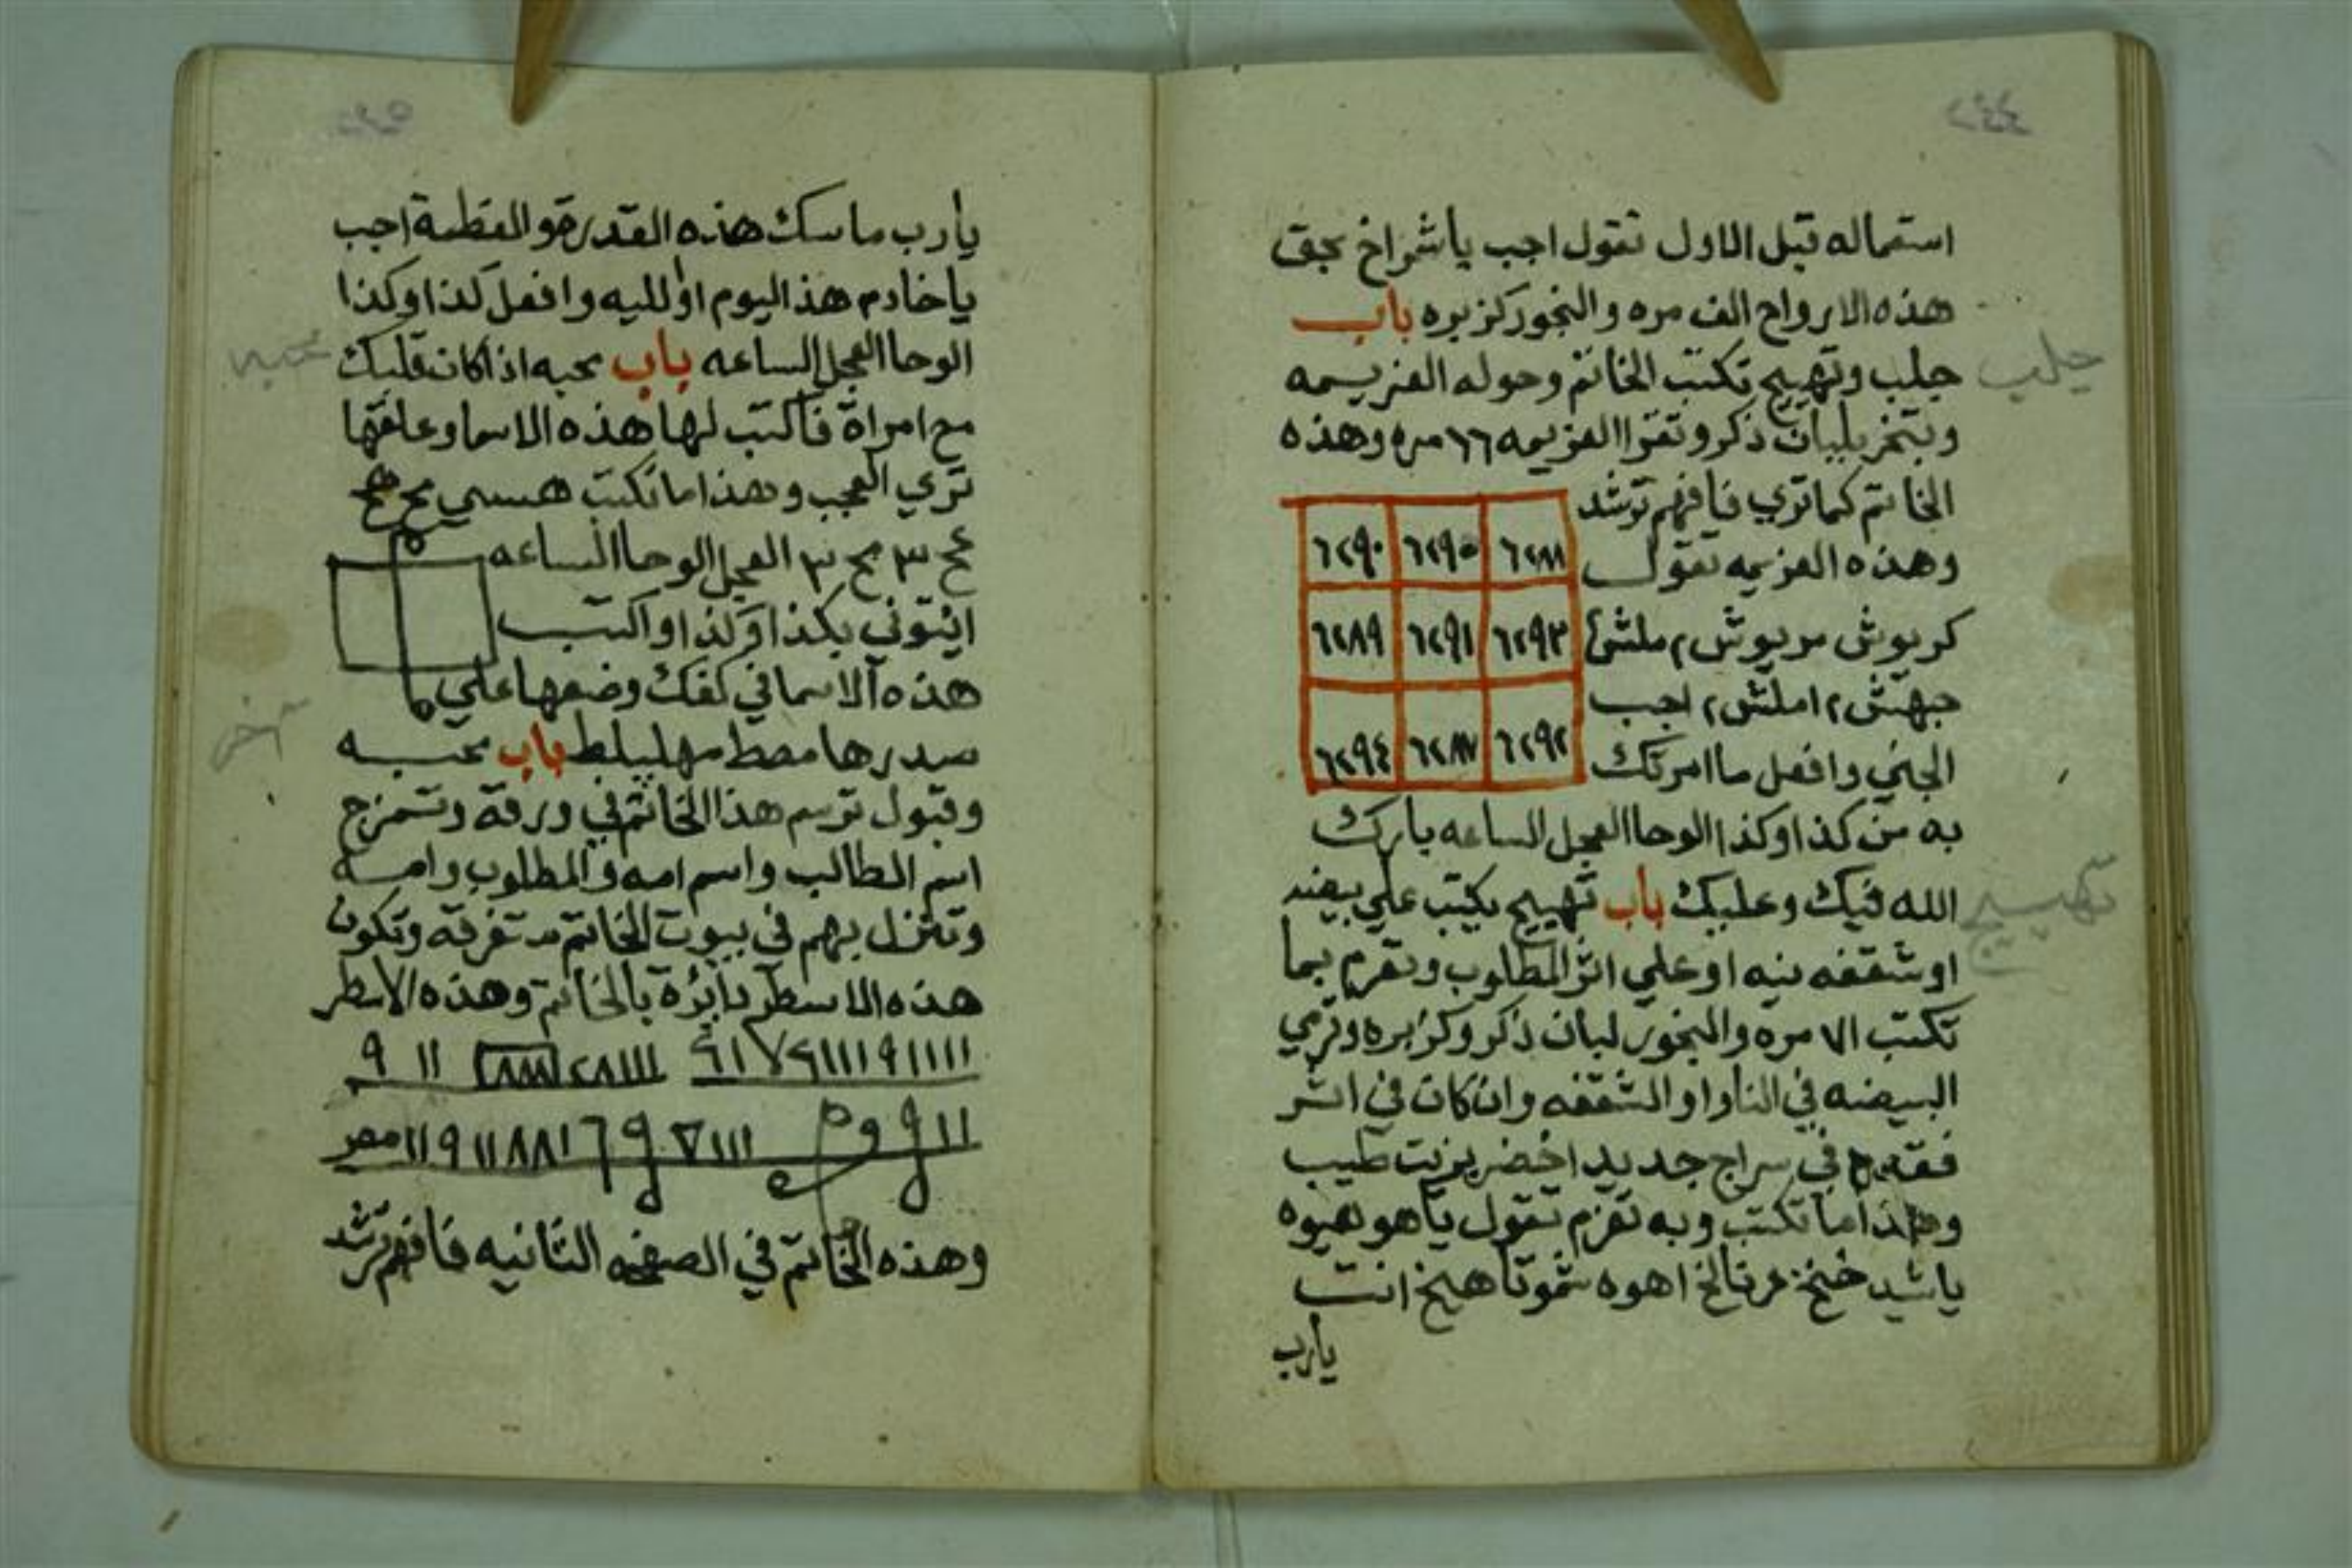 استعماله قبل الاول تقول اجب ياشراخ بحق
هذه الارواح الف مره والبخور كزبره باب
جلب وتهييج تكتب الخاتم وحوله العزيمه
وبتبخر بلبان ذكر وتقرا العزيمه ٦٦ مره وهذه
الخاتم كما تري فافهم ترشد
وهذه العزيمه تقول
كربوش مربوش ٢ ملشن
جهتش ٢ املش ٢ اجب
الجني وافعل ما امرتك
٦٢٩٠ ٦٢٩٥ ٦٢٨٨
٦٢٨٩ ٦٢٩١ ٦٢٩٣
٦٢٩٤ ٦٢٨٧ ٦٢٩٢
به من كذا وكذا الوحا العجل الساعه بارك
الله فيك وعليك باب تهييج يكتب علي بيضه
او شقفه نيه او علي اثر المطلوب وتعزم بما
تكتب الا مره والبخور لبان ذكر وكزبره وترمي
البيضه في النار او الشقفه وان كان في اثر
في سراج جديد اخضر بزيت طيب
وهذا ما تكتب وبه تعزم تقول ياهو
ياشد اهوه انت
يارب
جلب
تهييج
يارب ماسك هذه القدره والعظمة اجب
ياخادم هذا اليوم او الليه وافعل كذا وكذا
الوحا العجل الساعه باب محبه اذا كان قلبك
مع امراة فاكتب لها هذه الاسما وعلقها
تري العجب وهذا ما تكتب هسسي مح هح
عح ٣ مح ٣ العجل الوحا الساعه
ائيتوني بكذا وكذا او اكتب
هذه الاسما في كفك وضعها علي
صدرها مصط مهليلط باب محبه
وقبول ترسم هذا الخاتم في ورقة وتمزج
اسم الطالب واسم امه والمطلوب وامه
وتنزل بهم في بيوت الخاتم متفرقه وتكون
هذه الاسطر دائرة بالخاتم وهذه الاسطر
وهذه الخاتم في الصفحه الثانيه فافهم ترشد
محبه
آخر